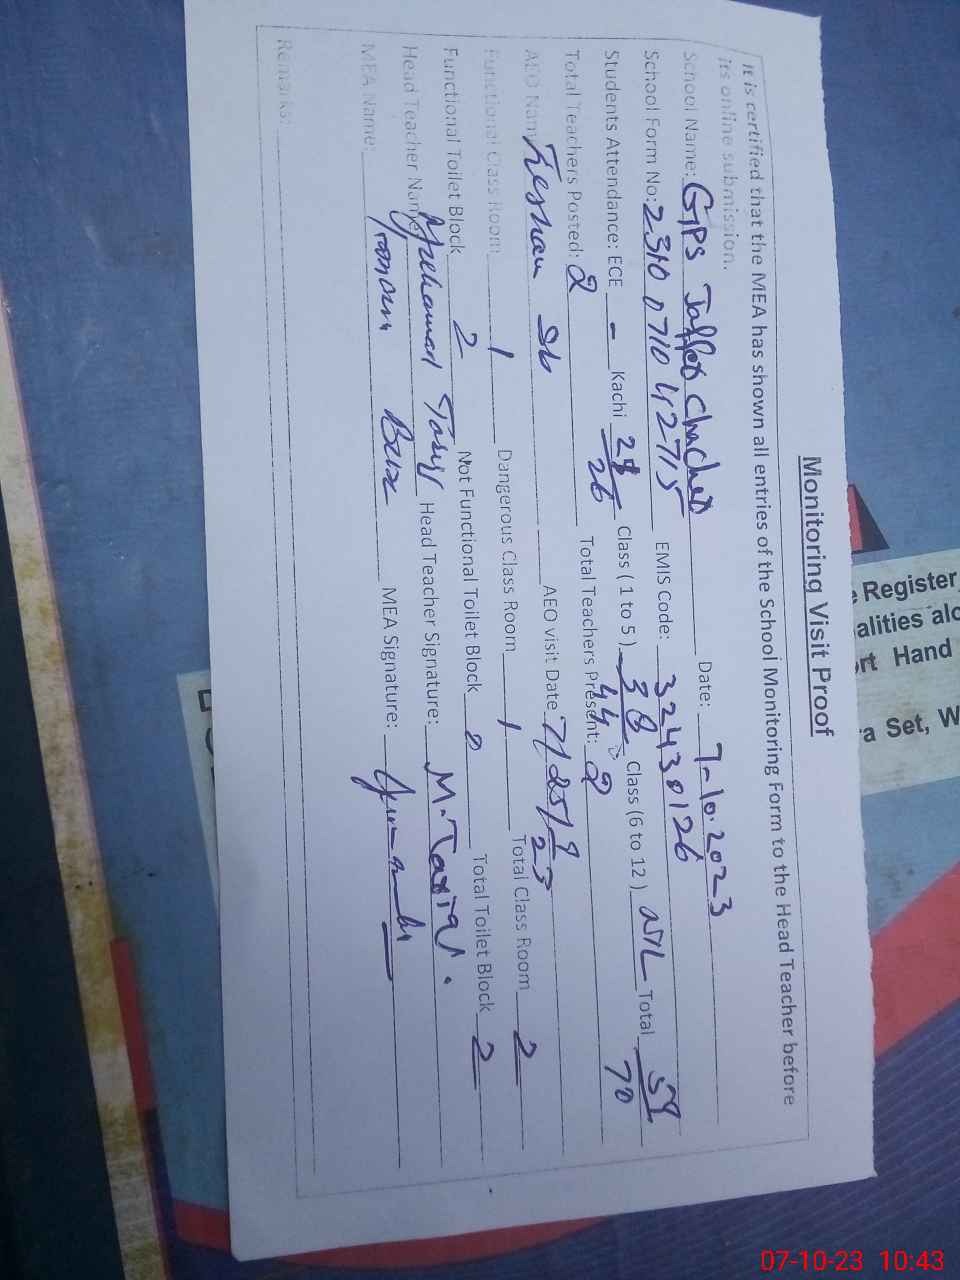 Monitoring Visit Proof
It is certified that the MEA has shown all entries of the School Monitoring Form to the Head Teacher before
its online submission.
School Name: GPS Jaffer Chacher Date: 7-10-2023
School Form No: 2310 0710 42715 EMIS Code: 32430126
Students Attendance: ECE - Kachi 26 Class (1 to 5) 38/44 Class (6 to 12) NIL Total 70
Total Teachers Posted: 2 Total Teachers Present: 2
AEO Name Sb AEO visit Date
Functional Class Room 1 Dangerous Class Room 1 Total Class Room 2
Functional Toilet Block 2 Not Functional Toilet Block 0 Total Toilet Block 2
Head Teacher Name Head Teacher Signature: M. Tariq.
MEA Name: MEA Signature:
Remarks:
Register
alities alo
rt Hand
a Set, W
07-10-23 10:43